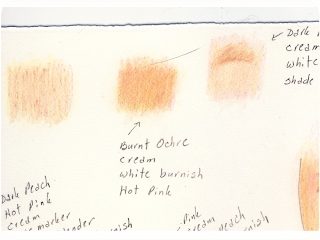 Dark
cream
white
shade
Burnt Ochre
cream
white burnish
Hot Pink
Dark Peach
Hot Pink
Cream
marker
Pink
cream Peach